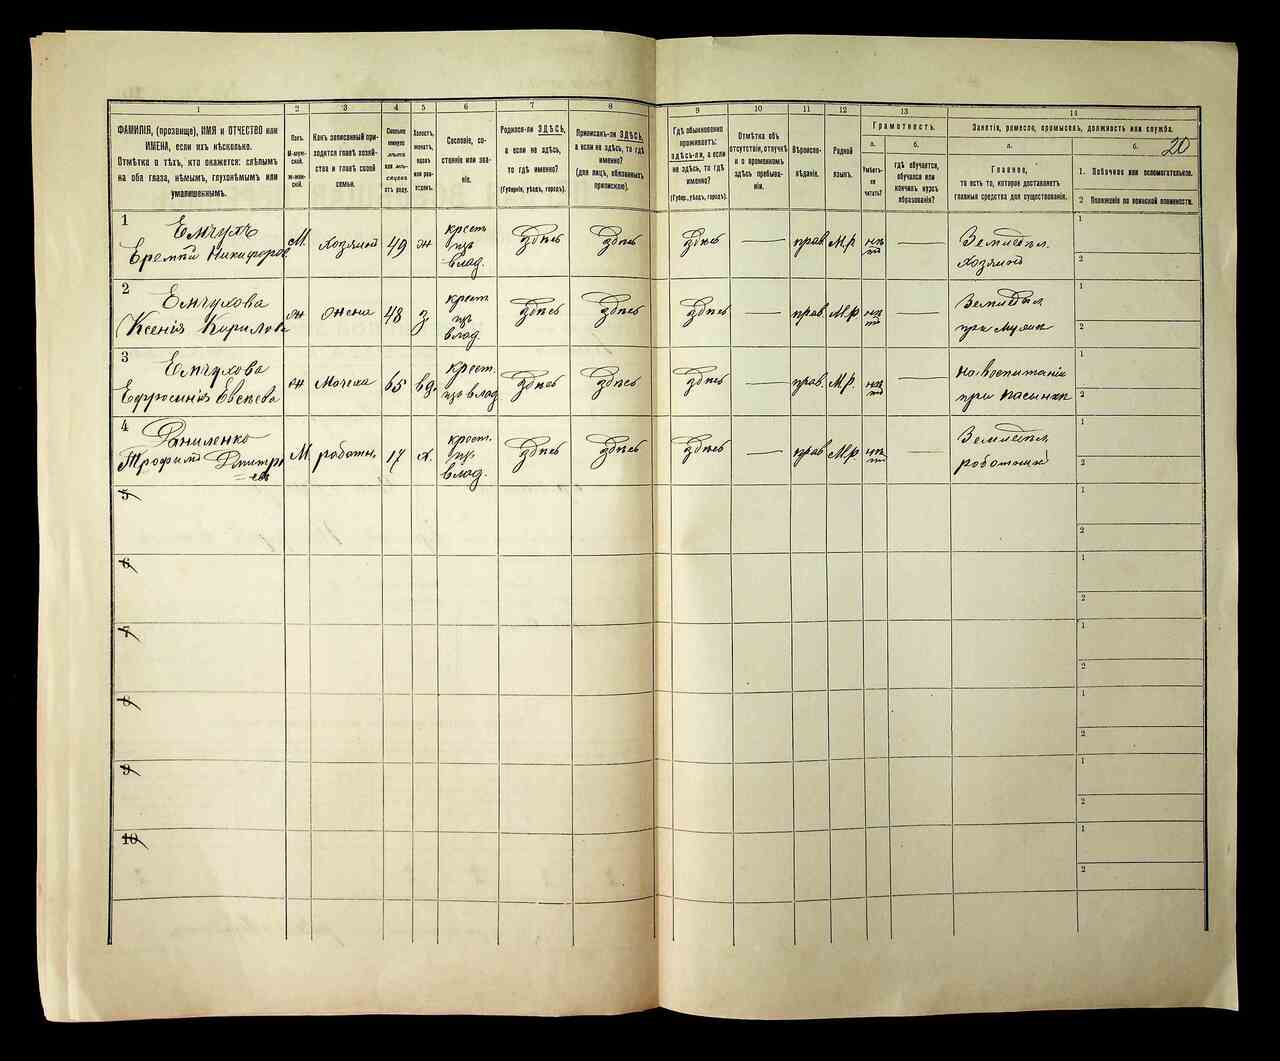 1
2
3
4
5
6
7
8
ФАМИЛІЯ, (прозвище), ИМЯ и ОТЧЕСТВО или
ИМЕНА, если ихъ нѣсколько.
Отмѣтка о тѣхъ, кто окажется: слѣпымъ
на оба глаза, нѣмымъ, глухонѣмымъ или
умалишеннымъ.
Полъ.
М-муж-
ской.
ж-жен-
скій.
Какъ записанный при-
ходится главѣ хозяй-
ства и главѣ своей
семьи.
Сколько
минуло
лѣтъ
или мѣ-
сяцевъ
отъ роду.
Холостъ,
женатъ,
вдовъ
или раз-
веденъ.
Сословіе, со-
стояніе или зва-
ніе.
Родился-ли ЗДѢСЬ,
а если не здѣсь,
то гдѣ именно?
(Губернія, уѣздъ, городъ).
Приписанъ-ли ЗДѢСЬ,
а если не здѣсь, то гдѣ
именно?
(для лицъ, обязанныхъ
припискою).
9
10
11
12
13
14
Гдѣ обыкновенно
проживаетъ:
здѣсь-ли, а если
не здѣсь, то гдѣ
именно?
(Губер., уѣздъ, городъ).
Отмѣтка объ
отсутствіи, отлучкѣ
и о временномъ
здѣсь пребыва-
ніи.
Вѣроиспо-
вѣданіе.
Родной
языкъ.
Грамотность.
а.
б.
Умѣетъ-
ли
читать?
гдѣ обучается,
обучался или
кончилъ курсъ
образованія?
Занятіе, ремесло, промыселъ, должность или служба.
20
а.
б.
Главное,
то есть то, которое доставляетъ
главныя средства для существованія.
1. Побочное или вспомогательное.
2 Положеніе по воинской повинности.
1
Емчухъ
Еремѣй Никифоров
М. хозяинъ 49 ж
крест
изъ
влад.
здѣсь здѣсь здѣсь — прав. М.р.
нѣтъ —
Земледѣл.
хозяинъ
1
2
2
Емчухова
Ксенія Кирилова
ж жена 48 з
крест
изъ
влад.
здѣсь здѣсь здѣсь — прав. М.р.
нѣтъ —
Земледѣл
при мужѣ
1
2
3
Емчухова
Ефросинія
ж Мачеха 65 вд.
крест.
изъ влад.
здѣсь здѣсь здѣсь — прав. М.р.
нѣтъ —
на воспитаніи
при пасынкѣ
1
2
4
Даниленко
Трофимъ Дмитрі
=евъ
М. работн. 17 х.
крест.
изъ
влад.
здѣсь здѣсь здѣсь — прав М.р.
нѣтъ —
Земледѣл
работникъ
1
2
5
1
2
6
1
2
7
1
2
8
1
2
9
1
2
10
1
2